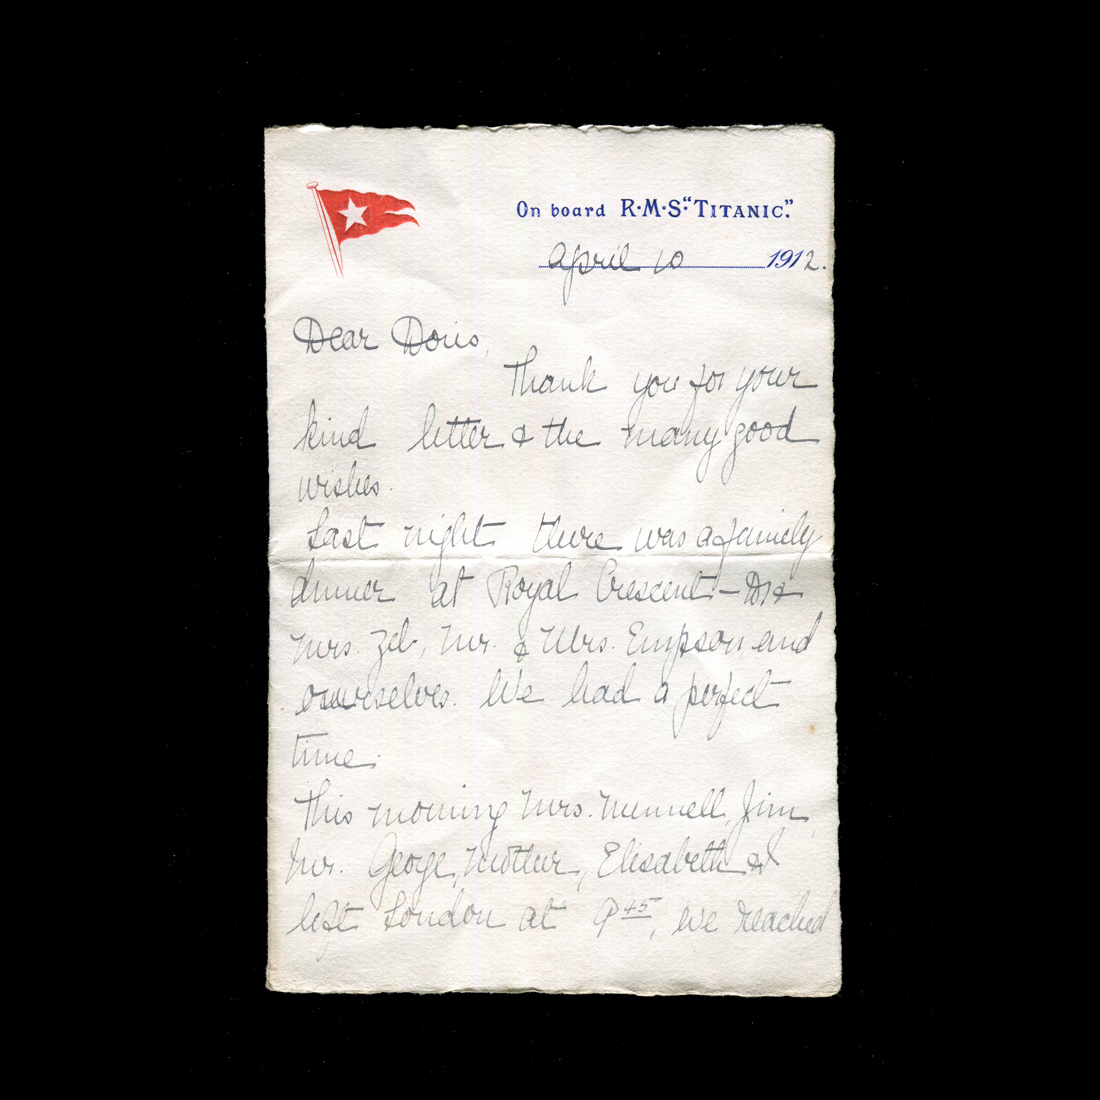 On board R·M·S·"TITANIC."
April 10 1912.
Dear Doris,
Thank you for your
kind letter & the many good
wishes.
Last night there was a family
dinner at Royal Crescent – Dr &
Mrs. Zeb, Mr. & Mrs. Empson and
ourselves. We had a perfect
time.
This morning Mrs. Mennell, Jim,
Mr. George, Mother, Elisabeth & I
left London at 9 45, we reached